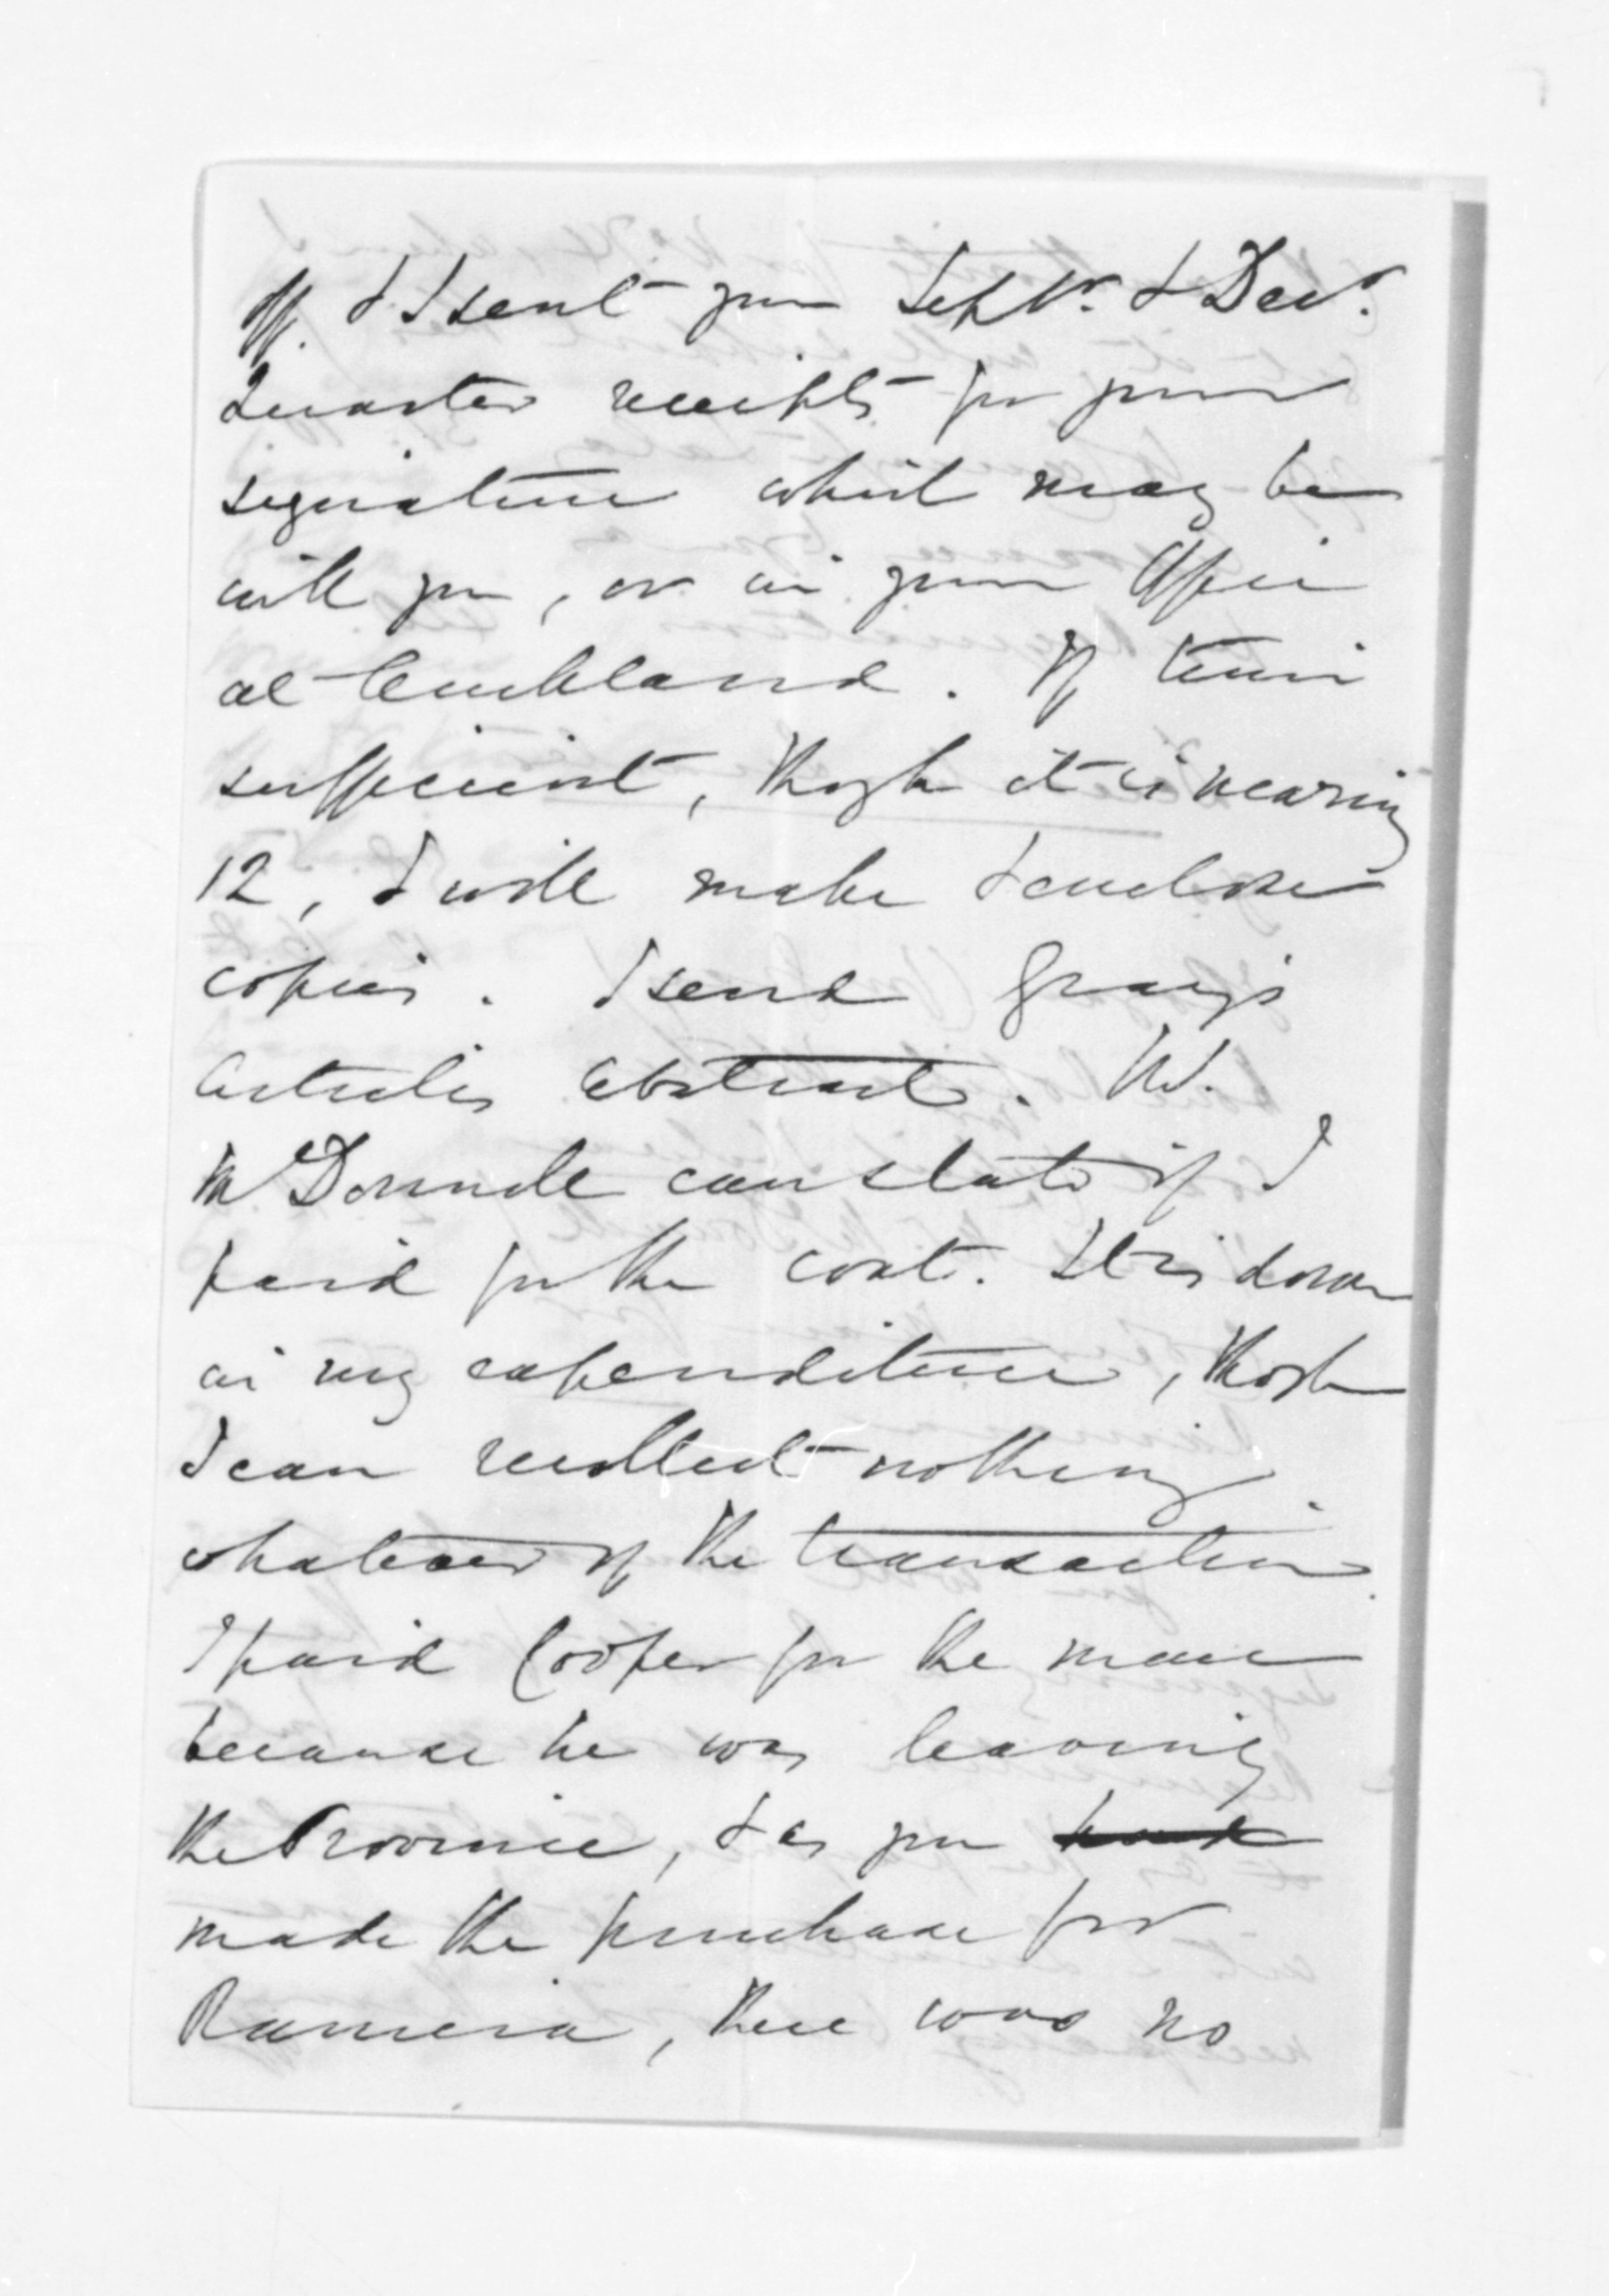 off & I sent you Septr. & Decr.
Quarter receipts for your
signature which may be
with you, or in your Office
at Auckland. If time
sufficient, though it is nearing
12, I will make & enclose
copies. I send Gray's
Articles abstract. W.
McDonnell can state if I
paid for the coat. It is down
in my expenditure, though
I can recollect nothing
whatever of the transaction.
I paid Cooper for the mare
because he was leaving
the Province, & as you
made the purchase for
there was no